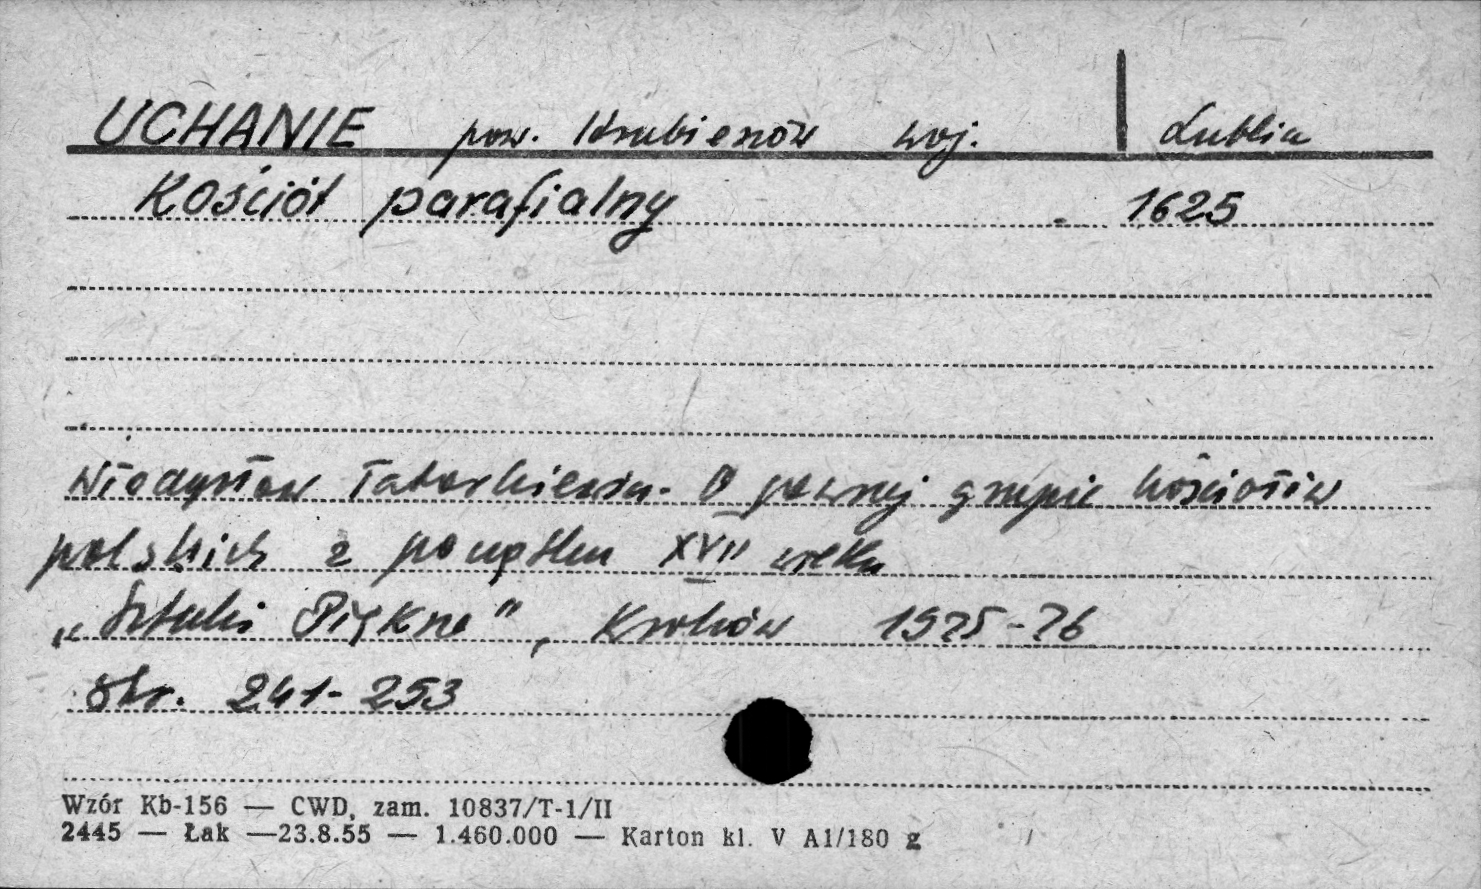 UCHANIE pow. Hrubieszów woj. Lublin
Kościół parafialny 1625
Władysław Tatarkiewicz. O pewnej grupie kościołów
polskich z początku XVII wieku
„Sztuki Piękne", Kraków 1925-26
str. 241-253
Wzór Kb-156 — CWD, zam. 10837/T-1/II
2445 — Łak —23.8.55 — 1.460.000 — Karton kl. V A1/180 g